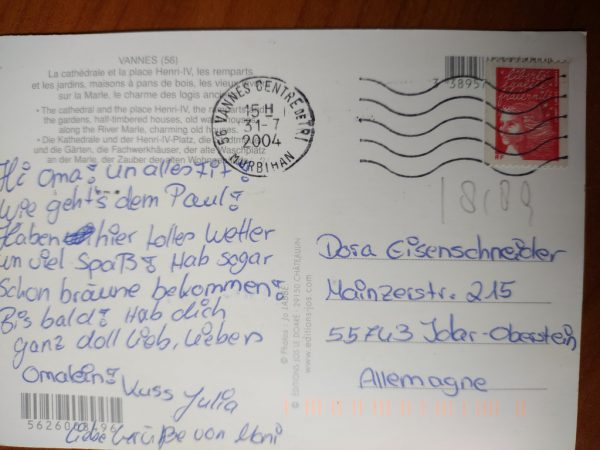 VANNES (56)
La cathédrale et la place Henri-IV, les remparts
et les jardins, maisons à pans de bois, les vieux
sur la Marle, le charme des logis anciens
• The cathedral and the place Henri-IV, the
the gardens, half-timbered houses, old
along the River Marle, charming old
• Die Kathedrale und der Henri-IV-Platz, die
und die Gärten, die Fachwerkhäuser, der alte Waschplatz
an der Marle, der Zauber der alten
56 VANNES CENTRE DE TRI
15 H
31-7
2004
MORBIHAN
3 3895
RF
18,09
Hi Oma! un alles fit!
Wie geht's dem Paul!
Haben hier tolles Wetter
un viel Spaß! Hab sogar
schon bräune bekommen!
Bis bald! Hab dich
ganz doll lieb, liebes
Omalein!
Kuss Julia
Liebe Grüße von Moni
© Photos: Jo LABBE
© EDITIONS JOS LE DOARE - 29150 CHATEAULIN
www.editionsjos.com
Dora Eisenschneider
Mainzerstr. 215
55743 Idar-Oberstein
Allemagne